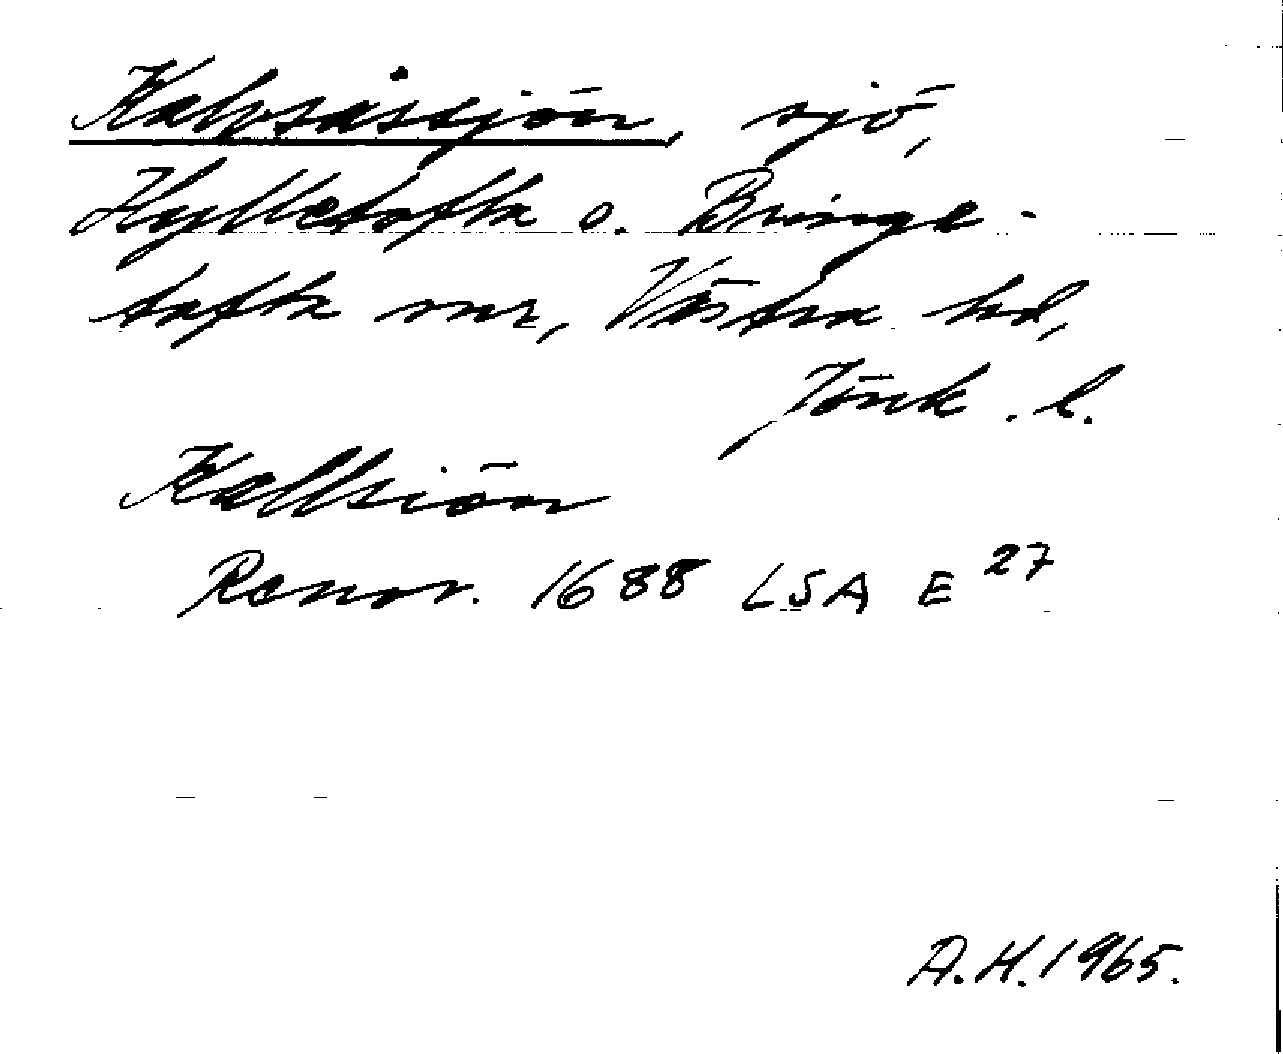 Kalvsåssjön, sjö,
Hylletofta o. Bringe-
tofta snr, Västra hd,
Jönk. l.
Kallsiön
Renov. 1688 LSA E 27
A.H. 1965.